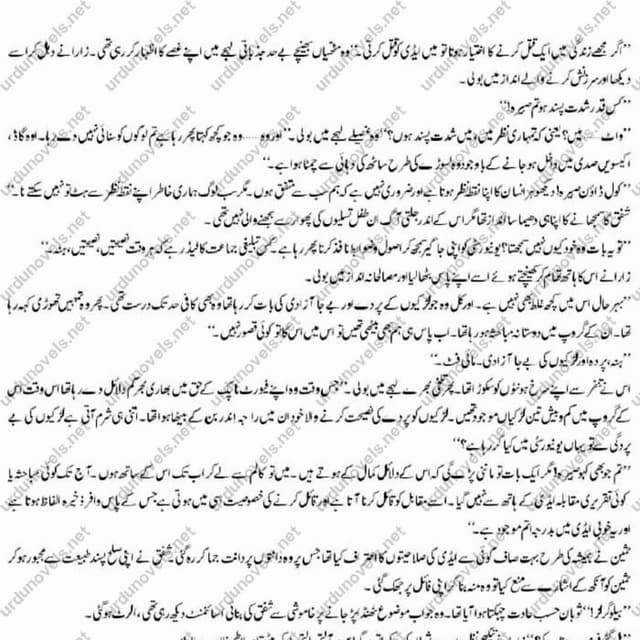 ”اگر مجھے زندگی میں ایک قتل کرنے کا اختیار ہوتا تو میں ایڈی کو قتل کرتی۔“ وہ مٹھیاں بھینچے بے حد جذباتی لہجے میں اپنے غصے کا اظہار کر رہی تھی۔ زارا نے دہل کر اسے
دیکھا اور سرزنش کرنے والے انداز میں بولی۔
”کس قدر شدت پسند ہو تم صیرہ!“
”واٹ ...... میں؟ یعنی کہ تمہاری نظر میں، میں شدت پسند ہوں؟“ وہ غصیلے لہجے میں بولی۔ ”اور وہ ...... وہ جو کچھ کہتا پھر رہا ہے تم لوگوں کو سنائی نہیں دے رہا۔ اوہ گاڈ،
اکیسویں صدی میں داخل ہو جانے کے باوجود وہ لسوڑے کی طرح ساٹھ کی دہائی سے چمٹا ہوا ہے۔“
”کول ڈاؤن صیرہ! دیکھو ہر انسان کا اپنا نقطہ نظر ہوتا ہے اور ضروری نہیں ہے کہ ہم سب سے متفق ہوں۔ مگر سب لوگ ہماری خاطر اپنے نقطہ نظر سے ہٹ تو نہیں سکتے نا۔“
شفق کا سمجھانے کا اپنا ہی دھیما سا انداز تھا مگر اس کے اندر جلتی آگ ان طفل تسلیوں کی پھوار سے بجھنے والی نہیں تھی۔
”تو یہ بات وہ خود کیوں نہیں سمجھتا؟ یونیورسٹی کو اپنی جاگیر سمجھ کر اصول و ضوابط نافذ کرتا پھر رہا ہے۔ کسی تبلیغی جماعت کا لیڈر ہے کہ ہر وقت نصیحتیں، نصیحتیں، ہنہ۔“
زارا نے اس کا ہاتھ تھام کر کھینچتے ہوئے اسے اپنے پاس بٹھا لیا اور مصالحانہ انداز میں بولی۔
”بہرحال اس میں کچھ غلط بھی نہیں ہے۔ اور کل وہ جو لڑکیوں کے پردے اور بے جا آزادی کی بات کر رہا تھا وہ بھی کافی حد تک درست تھی۔ پھر وہ تمہیں تھوڑی کہہ رہا
تھا۔ ان کے گروپ میں دوستانہ مباحثہ ہو رہا تھا۔ اب پاس ہی ہم بھی بیٹھی تھیں تو اس میں اس کا تو کوئی قصور نہیں۔“
”ہنہ، پردہ اور لڑکیوں کی بے جا آزادی۔ مائی فٹ۔“
اس نے تنفر سے اپنے سرخ ہونٹوں کو سکوڑا تھا۔ پھر تلخی بھرے لہجے میں بولی۔ ”جس وقت وہ اپنے فیورٹ ٹاپک کے حق میں بھاری بھرکم دلائل دے رہا تھا اس وقت اس
کے گروپ میں کم و بیش تین لڑکیاں موجود تھیں۔ لڑکیوں کو پردے کی نصیحت کرنے والا خود ان میں راجہ اندر بن کے بیٹھا ہوا تھا۔ اتنی ہی شرم آتی ہے لڑکیوں کی بے
پردگی سے تو یہاں یونیورسٹی میں کیا کر رہا ہے؟“
”تم جو بھی کہو صیرہ! مگر ایک بات تو ماننی پڑے گی کہ اس کے دلائل کمال کے ہوتے ہیں۔ میں تو کالج سے لے کر اب تک اس کے ساتھ ہوں۔ آج تک کوئی مباحثہ یا
کوئی تقریری مقابلہ ایڈی کے ہاتھ سے نہیں گیا۔ اسے مقابل کو قائل کرنا آتا ہے اور قائل کرنے کی خصوصیت اسی میں ہوتی ہے جس کے پاس وافر ذخیرہ الفاظ ہوتا ہے
اور یہ خوبی ایڈی میں بدرجہ اتم موجود ہے۔“
ثمین نے ہمیشہ کی طرح بہت صاف گوئی سے ایڈی کی صلاحیتوں کا اعتراف کیا تھا جس پر وہ دانتوں پر دانت جما کر رہ گئی۔ شفق نے اپنی صلح پسند طبیعت سے مجبور ہو کر
ثمین کو آنکھ کے اشارے سے منع کیا تو وہ منہ بنا کر اپنی فائل پر جھک گئی۔
”ہیلو گرلز!“ ثوبان حسب عادت چہکتا ہوا آیا تھا۔ وہ جو اب موضوع ٹھنڈا پڑ جانے پر خاموشی سے شفق کی بنائی اسائنمنٹ دیکھ رہی تھی، الرٹ ہو گئی۔
urdunovels.net